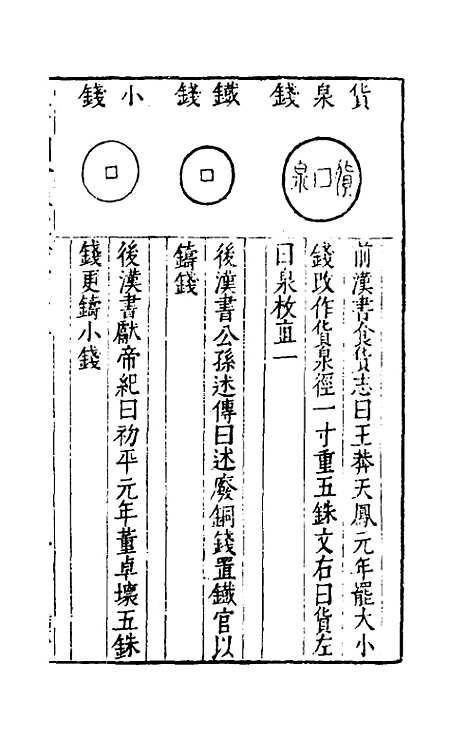 貨泉錢
貨泉
前漢書食貨志曰王莽天鳳元年罷大小
錢改作貨泉徑一寸重五銖文右曰貨左
曰泉枚直一
鐵錢
後漢書公孫述傳曰述廢銅錢置鐵官以
鑄錢
小錢
後漢書獻帝紀曰初平元年董卓壞五銖
錢更鑄小錢